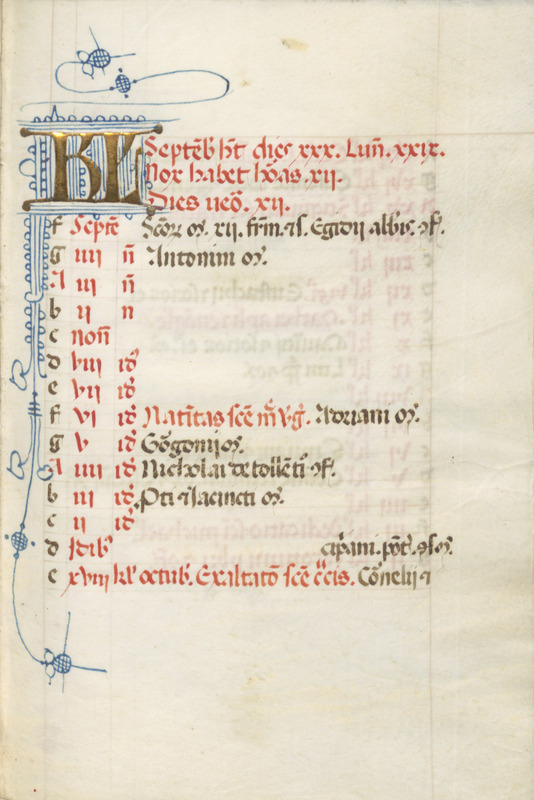 KL Septēb hīt dies xxx. Lun̄. xxix.
Nox habet hōas xii.
Dies ueō. xii.
f Septē Scōr m̄. xii. frm̄ ⁊ s. Egidii abbis ⁊f.
g iiii n̄ Antonini m̄.
A iii n̄
b ii n
c non̄
d viii id9
e vii id9
f vi id9 Natīitas scē m̄ v̄g. Adriani m̄.
g v id9 Gōgonij m̄.
A iiii id9 Nicholai de tollētī ⁊f.
b iii id9 Pti ⁊ Iacincti m̄.
c ii id9
d Idib9
cip̄ani. pōt. ⁊ſoꝝ.
e xviii kł octub. Exaltatō scē c̄cis. Cōnelij ⁊